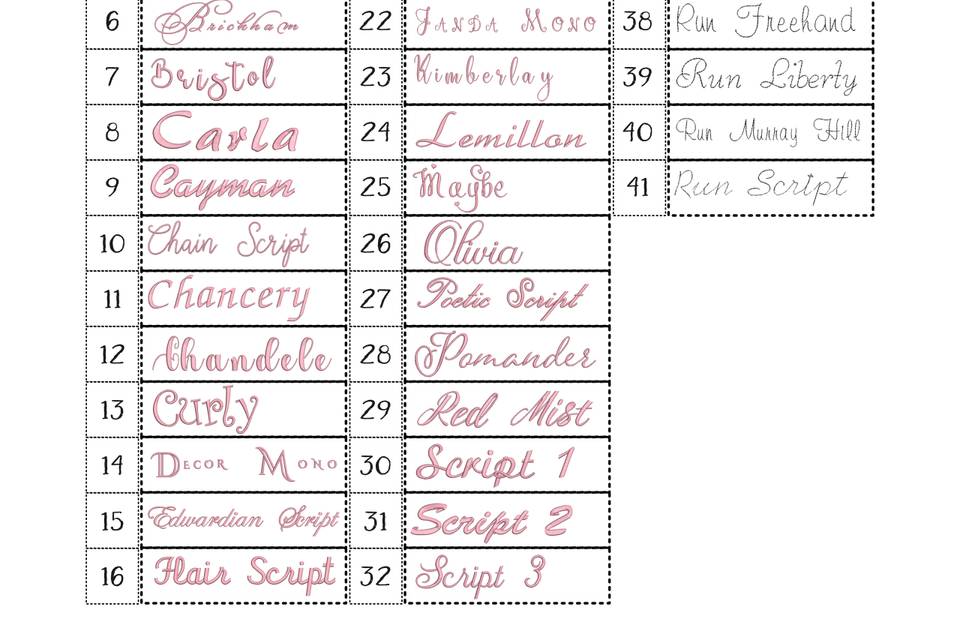 6 Brickham 22 Janda Mono 38 Run Freehand
7 Bristol 23 Kimberlay 39 Run Liberty
8 Carla 24 Lemillon 40 Run Murray Hill
9 Cayman 25 Maybe 41 Run Script
10 Chain Script 26 Olivia
11 Chancery 27 Poetic Script
12 Chandele 28 Pomander
13 Curly 29 Red Mist
14 Decor Mono 30 Script 1
15 Edwardian Script 31 Script 2
16 Flair Script 32 Script 3